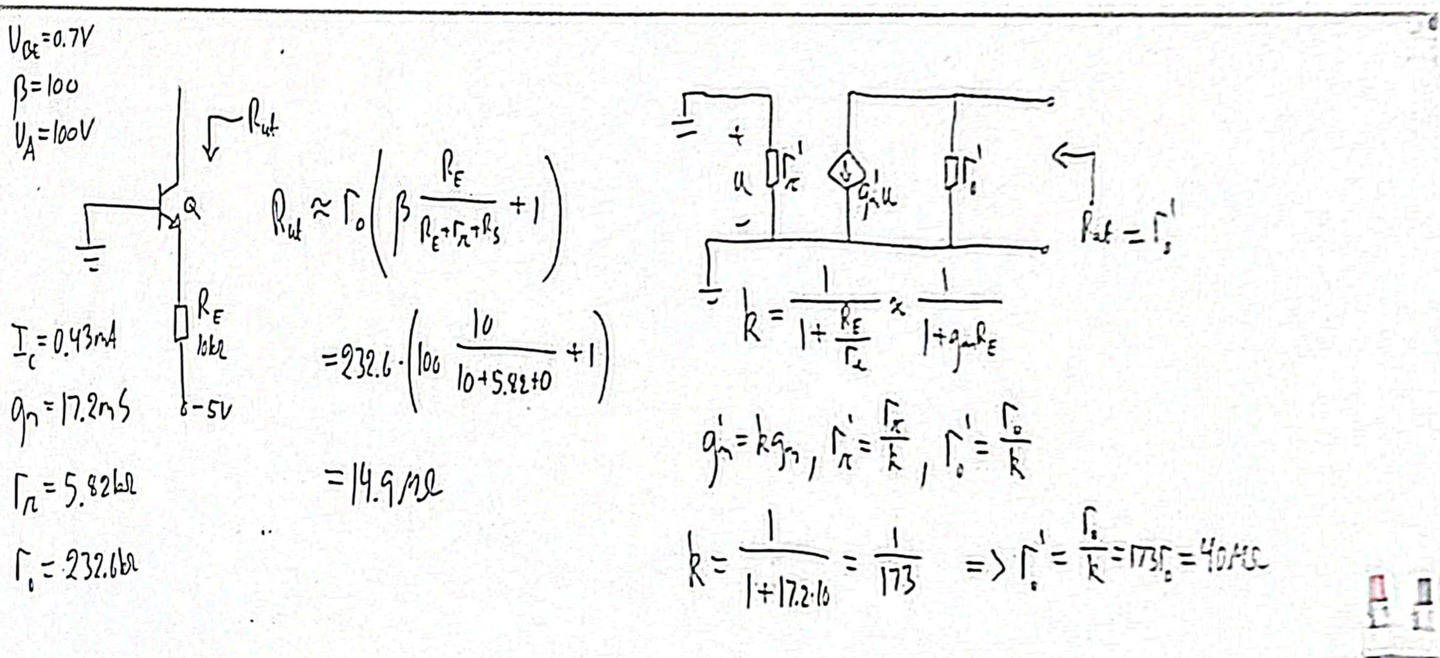 U_BE=0.7V
β=100
U_A=100V
R_ut
Q
R_E
10kΩ
-5V
I_C=0.43mA
g_m=17.2mS
r_π=5.82kΩ
r_o=232.6kΩ
R_ut≈r_o(β R_E/(R_E+r_π+R_S)+1)
=232.6·(100 10/(10+5.82+0)+1)
=14.9MΩ
+
u
-
r_π'
g_m'u
r_o'
R_ut=r_o'
k=1/(1+R_E/r_e)≈1/(1+g_mR_E)
g_m'=kg_m, r_π'=r_π/k, r_o'=r_o/k
k=1/(1+17.2·10)=1/173 => r_o'=r_o/k=173r_o=40MΩ